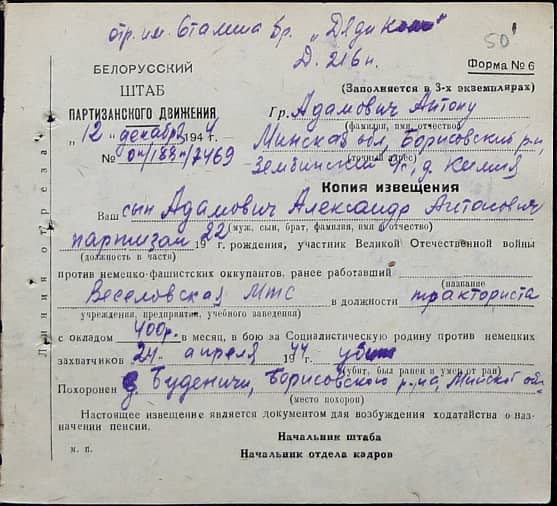 отр. им. Сталина бр. "Дяди Коли"
Д. 216 п.
50
БЕЛОРУССКИЙ
ШТАБ
ПАРТИЗАНСКОГО ДВИЖЕНИЯ
„12" декабря 1944 г.
№ 7469
Форма № 6
(Заполняется в 3-х экземплярах)
Гр. Адамович Антону
(фамилия, имя, отчество)
Минская обл, Борисовский р-н,
(точный адрес)
Зембинский с/с, д. Кимия
Копия извещения
Ваш сын Адамович Александр Антонович
(муж, сын, брат, фамилия, имя и отчество)
партизан 22 19 г. рождения, участник Великой Отечественной войны
(должность в части)
против немецко-фашистских оккупантов, ранее работавший
(название
Веселовская МТС в должности тракториста
учреждения, предприятия, учебного заведения)
с окладом 400 р. в месяц, в бою за Социалистическую родину против немецких
захватчиков 24 апреля 1944 г. убит
(убит, был ранен и умер от ран)
Похоронен д Буденичи, Борисовского р-на, Минской обл.
(место похорон)
Настоящее извещение является документом для возбуждения ходатайства о наз-
начении пенсии.
Начальник штаба
м. п.
Начальник отдела кадров
Линия отреза